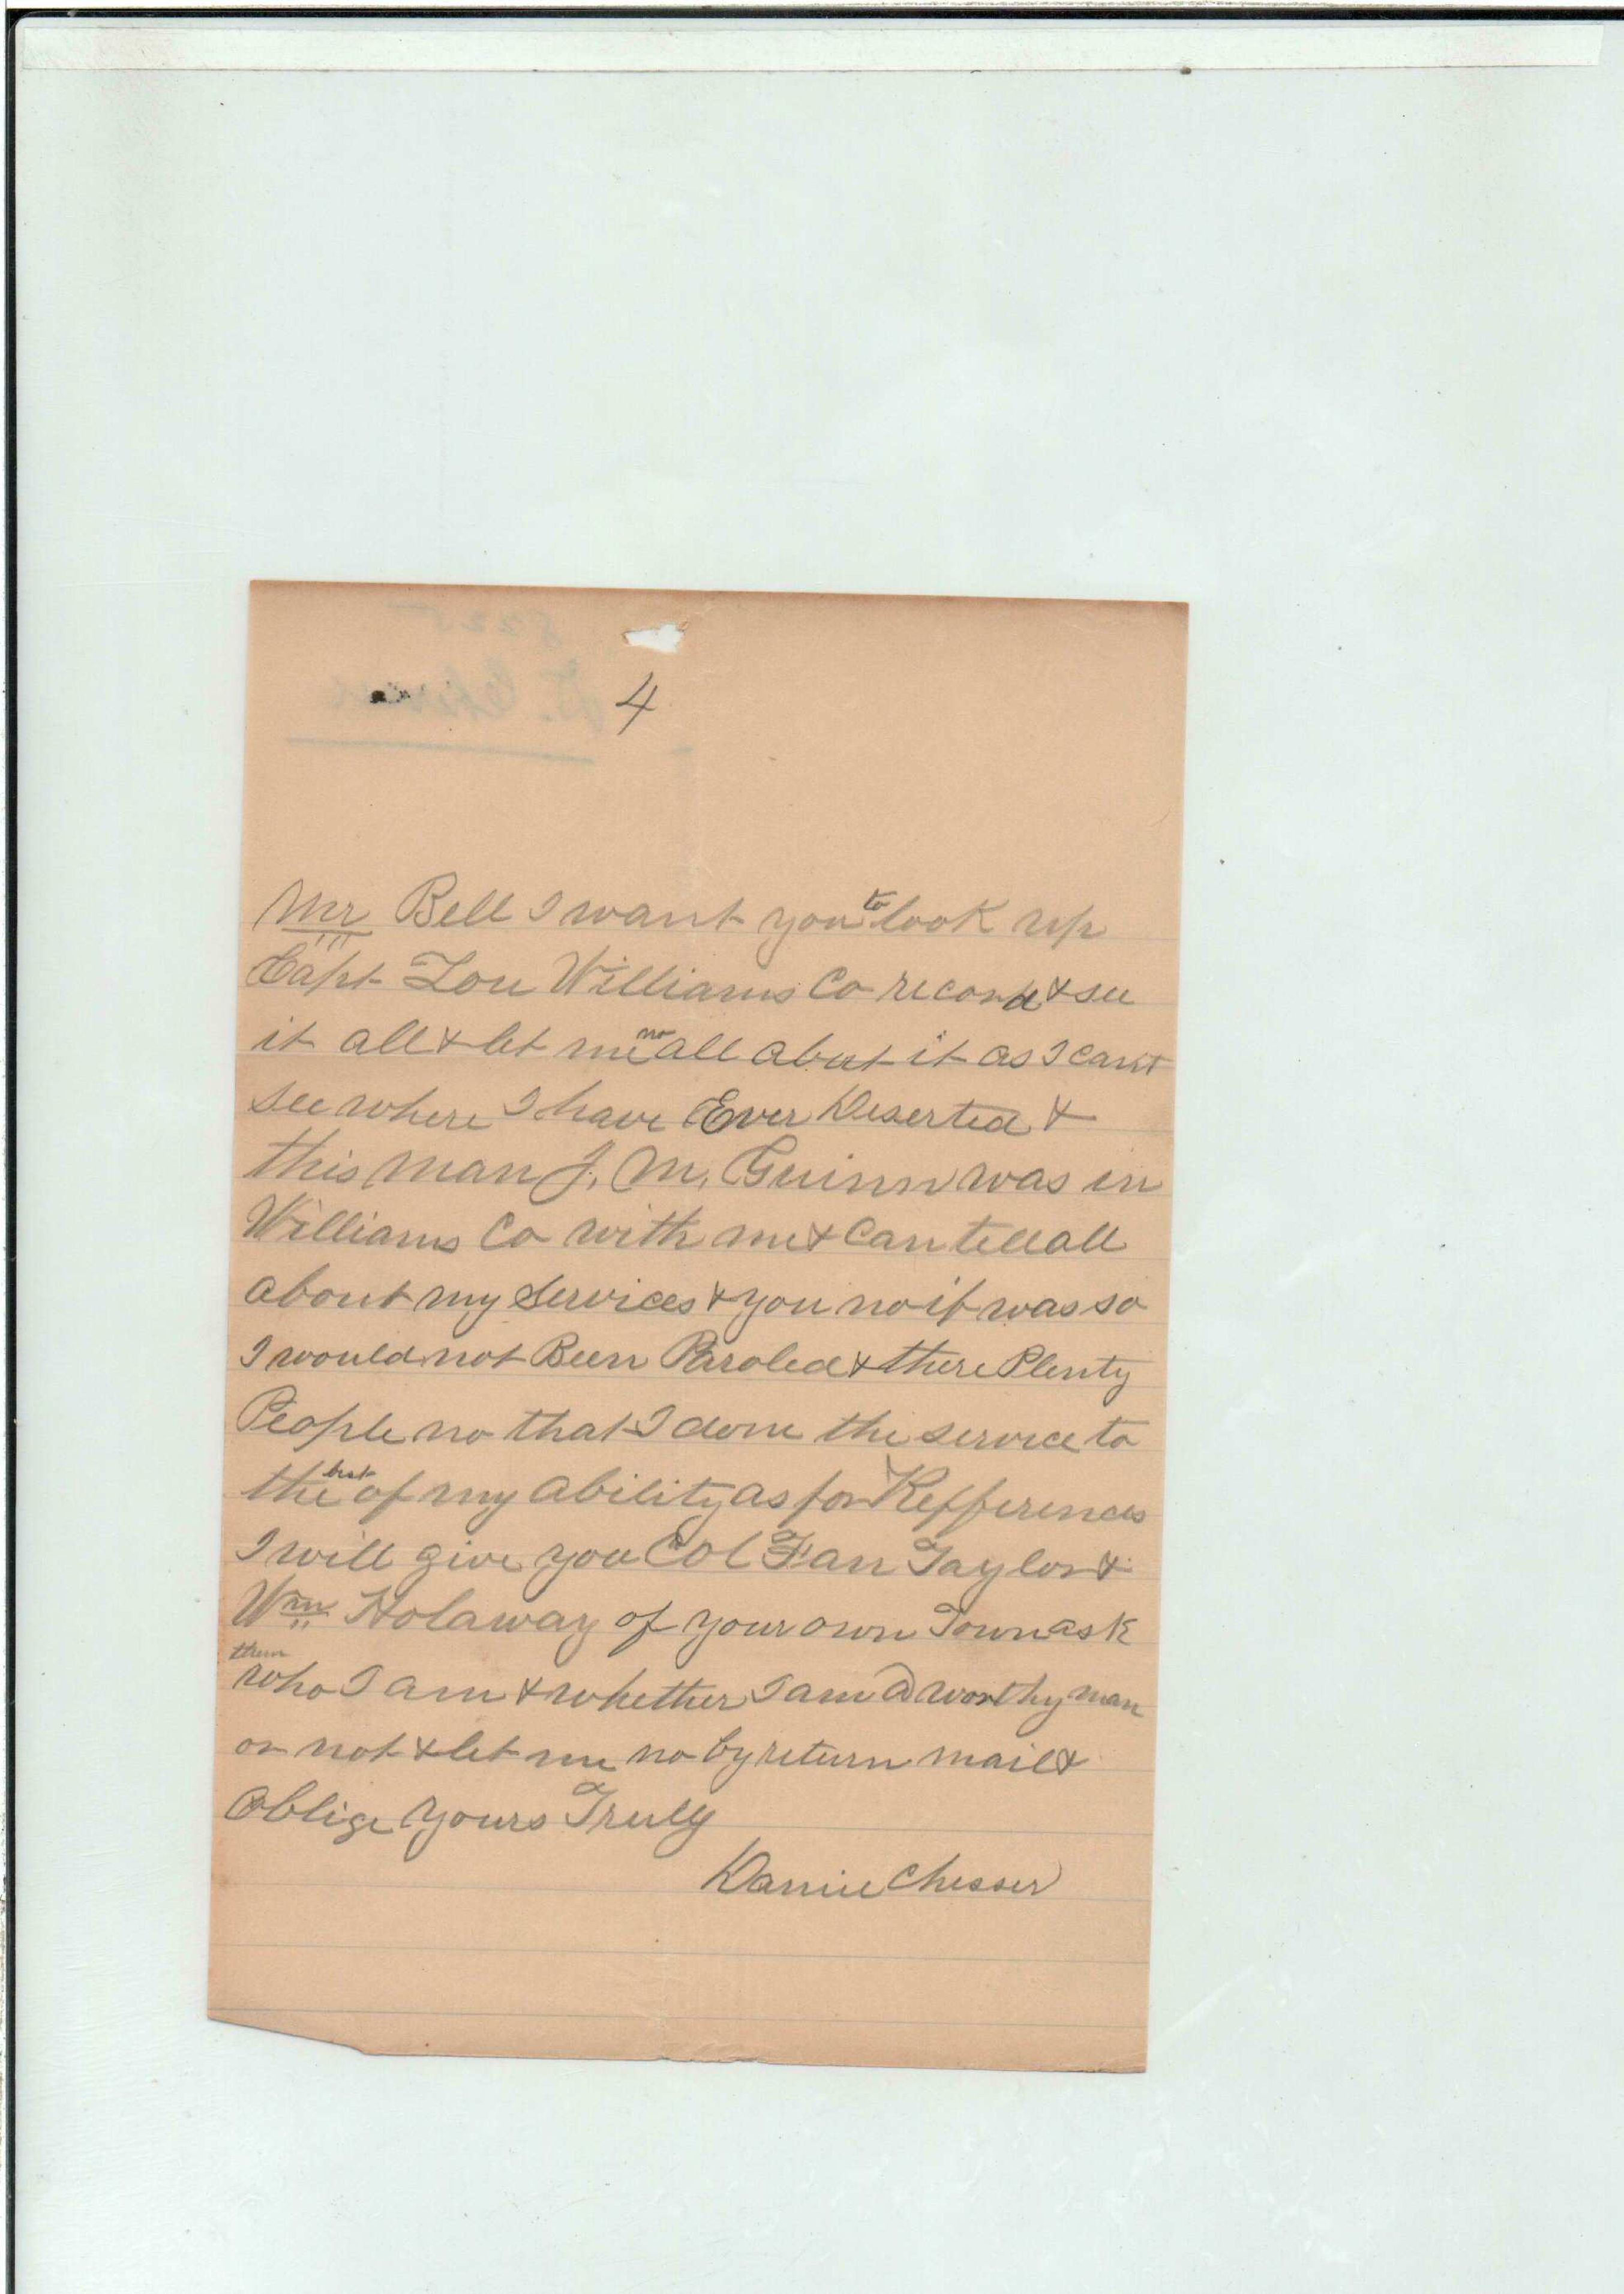 4
Mr Bell I want you to look up
Capt Lou Williams Co record & see
it all & let me no all about it as I cant
see where I have Ever Deserted &
this man J. M. Guinn was in
Williams Co with me & Can tell all
about my Services & you no if was so
I would not Been Paroled & there Plenty
People no that I done the service to
the best of my ability as for Refferences
I will give you Col Fan Taylor &
Wm Holaway of your own Town ask
them who I am & whether I am a worthy man
or not & let me no by return mail &
Oblige Yours Truly
Dannie Chesser